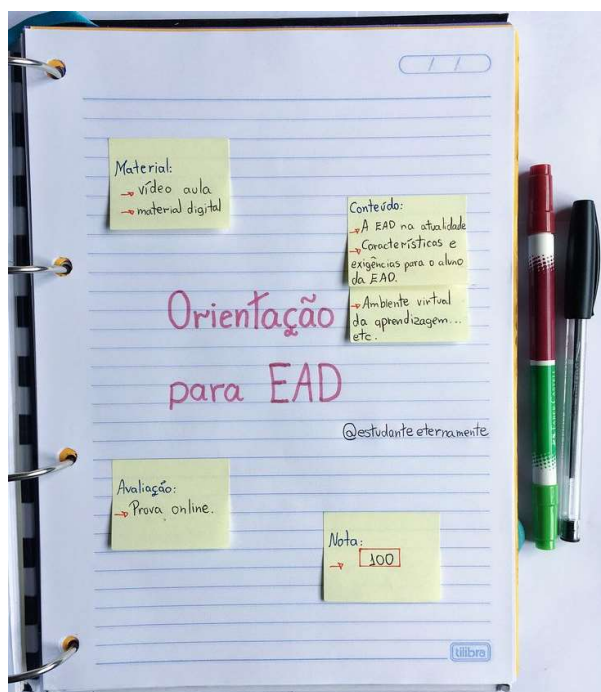 / /
Material:
→ vídeo aula
→ material digital
Conteúdo:
→ A EAD na atualidade
→ Características e
exigências para o aluno
da EAD.
→ Ambiente virtual
da aprendizagem...
etc.
Orientação
para EAD
@estudanteeternamente
Avaliação:
→ Prova online.
Nota:
→ 100
tilibra